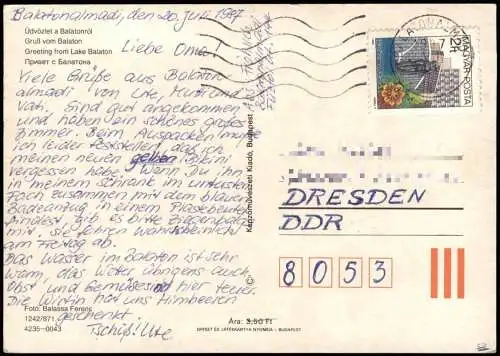 Balatonalmadi, den 20. Juli 1987
Üdvözlet a Balatonról
Gruß vom Balaton
Greeting from Lake Balaton
Привет с Балатона
Liebe Oma!
Viele Grüße aus Balaton
almadi von Ute, Mutti und
Vati. Sind gut angekommen
und haben ein schönes großes
Zimmer. Beim Auspacken mußte
ich leider feststellen, das ich
meinen neuen gelben Bikini
vergessen habe. Wenn Du ihn
in meinem Schrank im untersten
Foch zusammen mit dem blauen
Badeanzug in einem Plastebeutel
findest, gib es bitte
mit, sie fahren wahrscheinlich
am Freitag ab.
Das Wasser im Balaton ist sehr
warm, das Wetter übrigens auch.
Obst und Gemüse sind hier teuer.
Die Wirtin hat uns Himbeeren
geschenkt.
Tschüß! Ute
Foto: Balassa Ferenc
1242/871.
4235-0043
Képzőművészeti Kiadó, Budapest
Ára: 3,50 Ft
OFFSET ÉS JÁTÉKKÁRTYA NYOMDA - BUDAPEST
MAGYAR POSTA
DRESDEN
DDR
8053